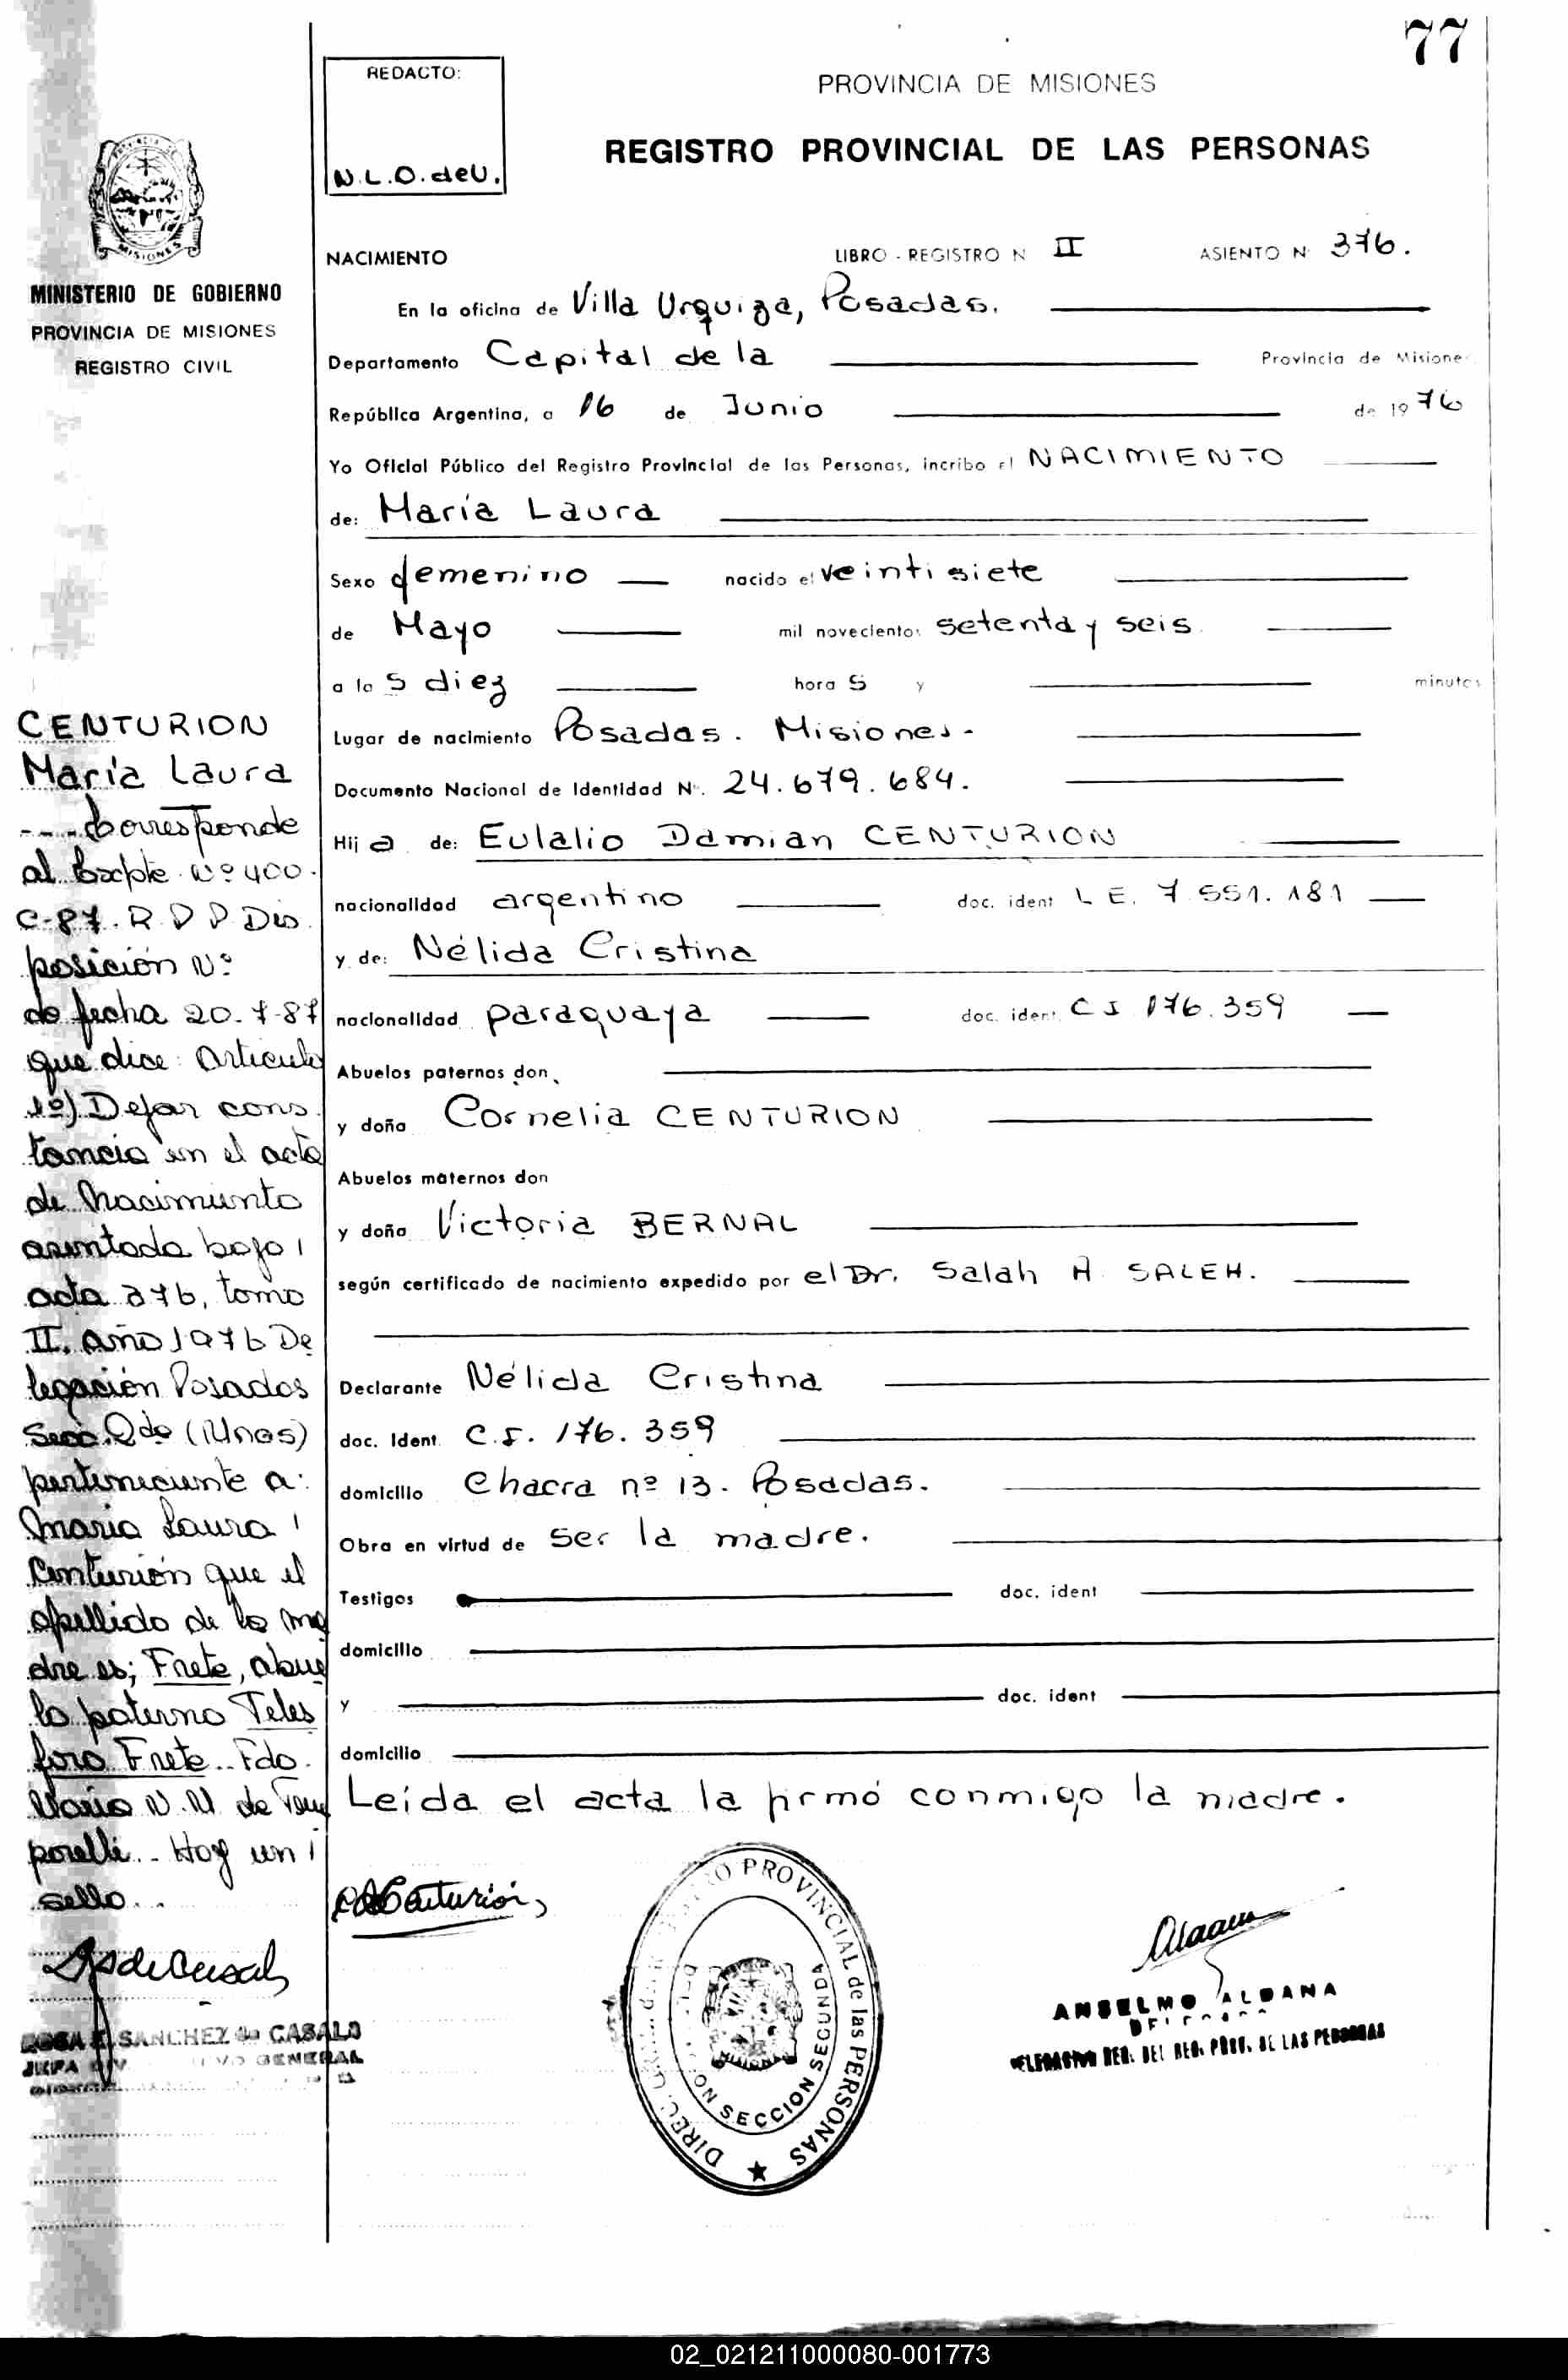 77
REDACTO:
N.L.O. deU.
PROVINCIA DE MISIONES
REGISTRO PROVINCIAL DE LAS PERSONAS
MISIONES
MINISTERIO DE GOBIERNO
PROVINCIA DE MISIONES
REGISTRO CIVIL
NACIMIENTO LIBRO - REGISTRO N II ASIENTO N 376.
En la oficina de Villa Urquiza, Posadas.
Departamento Capital de la Provincia de Misiones
República Argentina, a 16 de Junio de 1976
Yo Oficial Público del Registro Provincial de las Personas, incribo el NACIMIENTO
de: María Laura
Sexo femenino nacido el veintisiete
de Mayo mil novecientos setenta y seis
a las diez horas y minutos
Lugar de nacimiento Posadas. Misiones.
Documento Nacional de Identidad N°. 24.679.684.
Hija de: Eulalio Damian CENTURION
nacionalidad argentino doc. ident L E. 7 551.181
y de: Nélida Cristina
nacionalidad paraguaya doc. ident. C I 176.359
Abuelos paternos don
y doña Cornelia CENTURION
Abuelos maternos don
y doña Victoria BERNAL
según certificado de nacimiento expedido por el Dr. Salah A. SALEH.
Declarante Nélida Cristina
doc. Ident. C.I. 176.359
domicilio Chacra nº 13. Posadas.
Obra en virtud de ser la madre.
Testigos doc. ident
domicilio
y doc. ident
domicilio
Leída el acta la firmó conmigo la madre.
CENTURION
María Laura
Corresponde
al Expte Nº 400.
C-87. R P P Dis
posición Nº
de fecha 20-7-87
que dice: Articulo
1º) Dejar cons
tancia en el acta
de Nacimiento
asentada bajo
acta 376, tomo
II, año 1976 De
legación Posadas
Secc. 2da (Mnes)
perteneciente a:
María Laura
Centurión que el
apellido de la ma
dre es; Frete, abue
lo paterno Teles
foro Frete. Fdo.
de Tem
porelli. Hay un
sello.
Centurión
ROSA E. SANCHEZ de CASALS
JEFA GENERAL
DIREC. PROVINCIAL de las PERSONAS
SECCION SEGUNDA
ANSELMO ALDANA
DELEGADO
DELEGACION REG. DEL REG. PROV. DE LAS PERSONAS
02_021211000080-001773